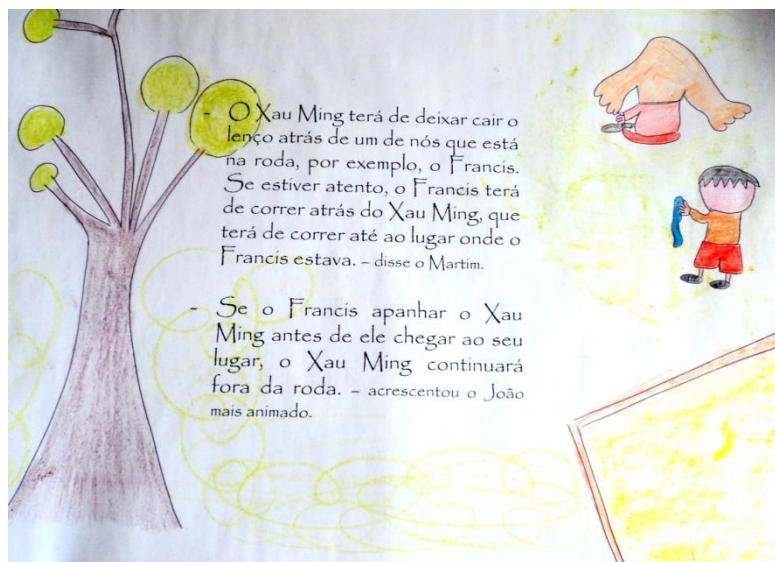 - O Xau Ming terá de deixar cair o
lenço atrás de um de nós que está
na roda, por exemplo, o Francis.
Se estiver atento, o Francis terá
de correr atrás do Xau Ming, que
terá de correr até ao lugar onde o
Francis estava. – disse o Martim.
- Se o Francis apanhar o Xau
Ming antes de ele chegar ao seu
lugar, o Xau Ming continuará
fora da roda. – acrescentou o João
mais animado.